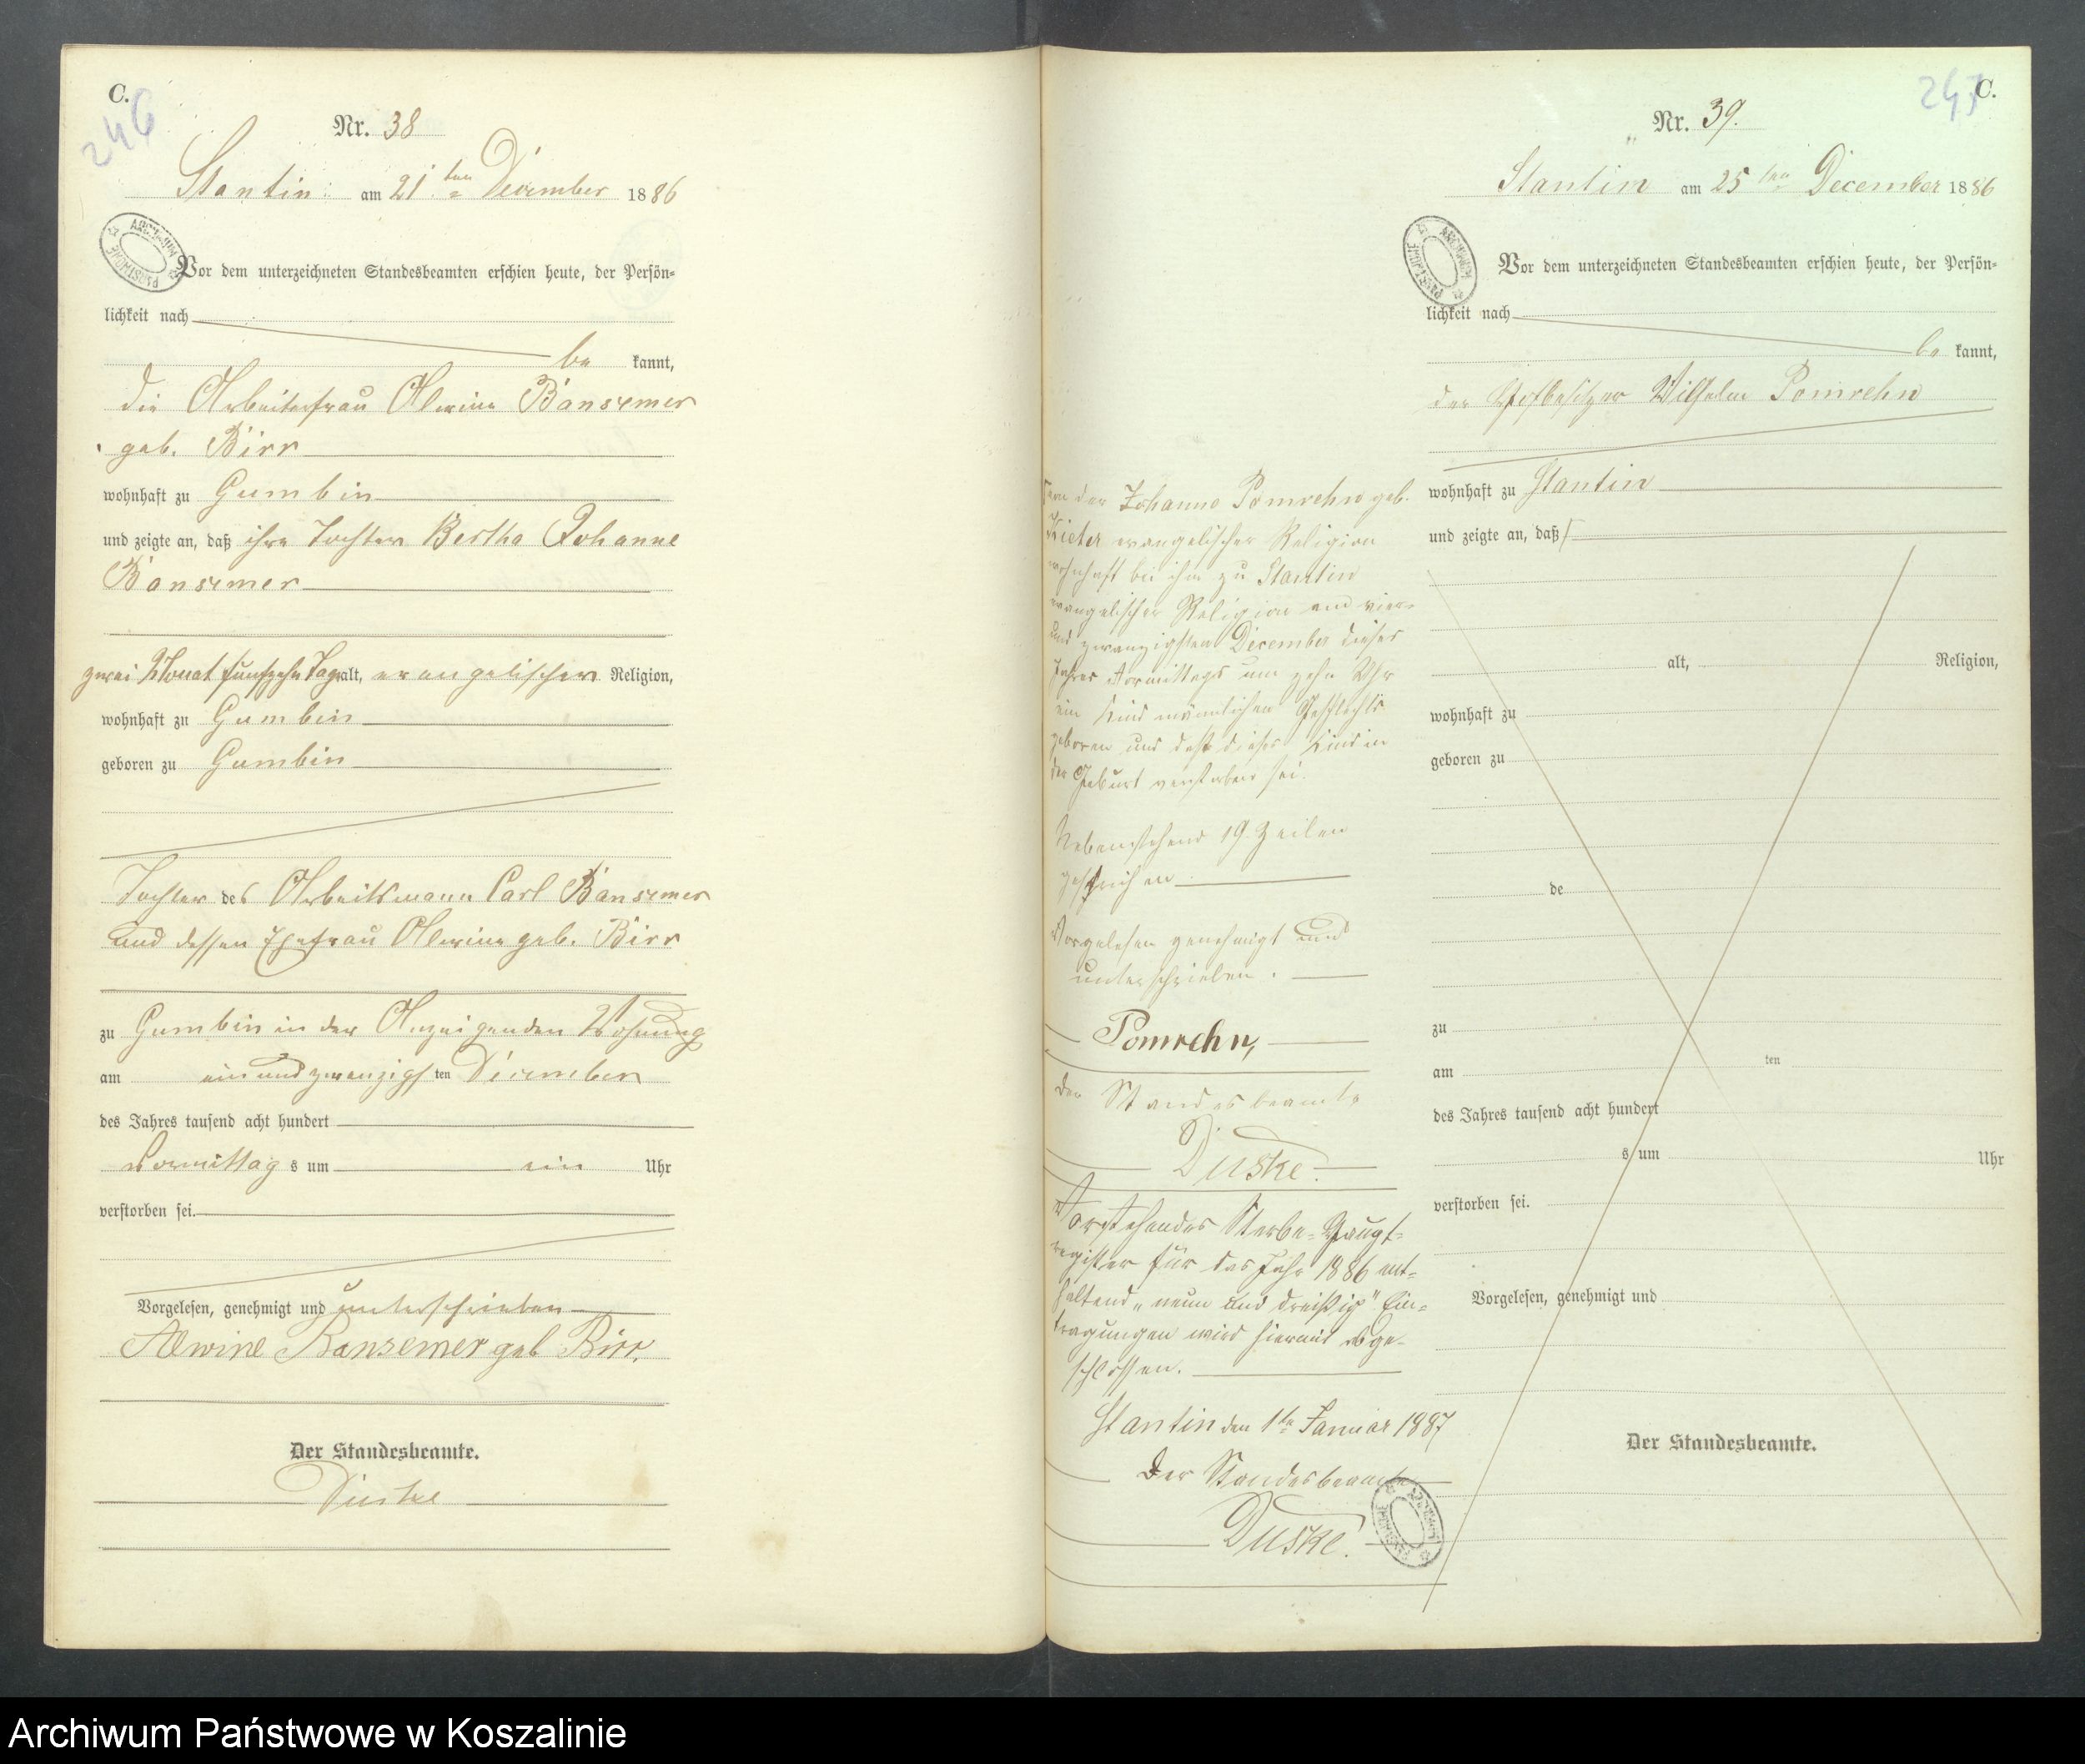 C.
246
Nr. 38
Stantin am 21ten December 1886
Vor dem unterzeichneten Standesbeamten erschien heute, der Persön-
lichkeit nach
be kannt,
die Arbeiterfrau Alwine Bansemer
geb. Birr
wohnhaft zu Gumbin
und zeigte an, daß ihre Tochter Bertha Johanne
Bansemer
zwei Monat fünfzehn Tage alt, evangelischer Religion,
wohnhaft zu Gumbin
geboren zu Gumbin
Tochter des Arbeitsmann Carl Bansemer
und dessen Ehefrau Alwine geb. Birr
zu Gumbin in der Anzeigenden Wohnung
am ein und zwanzigsten December
des Jahres tausend acht hundert
Vormittags um ein Uhr
verstorben sei.
Vorgelesen, genehmigt und unterschrieben
Alwine Bansemer geb Birr.
Der Standesbeamte.
Duske
C.
247
Nr. 39.
Stantin am 25ten December 1886
Vor dem unterzeichneten Standesbeamten erschien heute, der Persön-
lichkeit nach
be kannt,
der Hofbesitzer Wilhelm Pomrehn
wohnhaft zu Stantin
und zeigte an, daß
alt, Religion,
wohnhaft zu
geboren zu
de
zu
am ten
des Jahres tausend acht hundert
s um Uhr
verstorben sei.
Vorgelesen, genehmigt und
Der Standesbeamte.
von der Johanne Pomrehn geb.
evangelischer Religion
wohnhaft bei ihm zu Stantin
evangelischer Religion am vier-
und zwanzigsten December dieses
Jahres Vormittags um zehn Uhr
ein Kind männlichen Geschlechts
geboren und daß dieses Kind in
der Geburt verstorben sei.
Nebenstehend 19 Zeilen
gestrichen
Vorgelesen genehmigt und
unterschrieben.
Pomrehn,
Der Standesbeamte
Duske.
Vorstehendes Sterbe-Haupt-
register für das Jahr 1886 ent-
haltend „neun und dreißig" Ein-
tragungen wird hiermit abge-
schlossen.
Stantin den 1ten Januar 1887
Der Standesbeamte
Duske.
ARCHIWUM PAŃSTWOWE
ARCHIWUM PAŃSTWOWE
ARCHIWUM PAŃSTWOWE
Archiwum Państwowe w Koszalinie